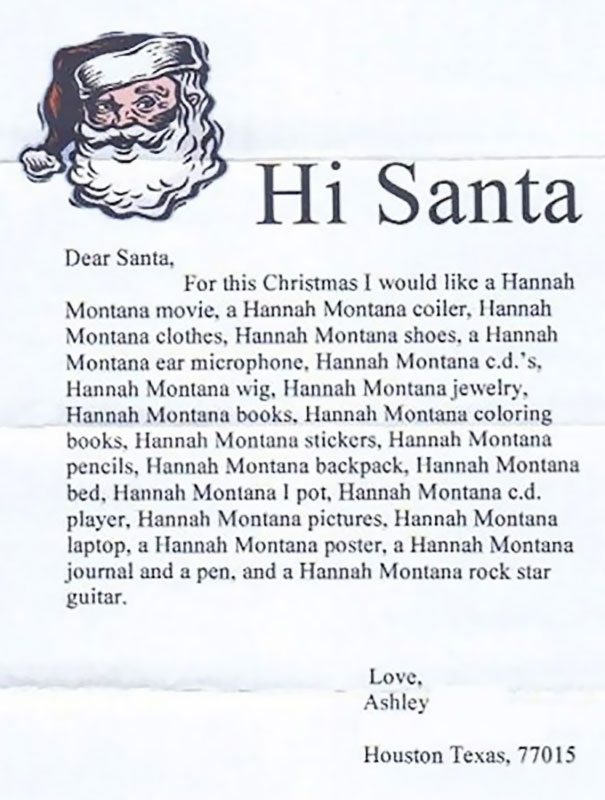 Hi Santa
Dear Santa,
For this Christmas I would like a Hannah
Montana movie, a Hannah Montana coiler, Hannah
Montana clothes, Hannah Montana shoes, a Hannah
Montana ear microphone, Hannah Montana c.d.'s,
Hannah Montana wig, Hannah Montana jewelry,
Hannah Montana books, Hannah Montana coloring
books, Hannah Montana stickers, Hannah Montana
pencils, Hannah Montana backpack, Hannah Montana
bed, Hannah Montana I pot, Hannah Montana c.d.
player, Hannah Montana pictures, Hannah Montana
laptop, a Hannah Montana poster, a Hannah Montana
journal and a pen, and a Hannah Montana rock star
guitar.
Love,
Ashley
Houston Texas, 77015